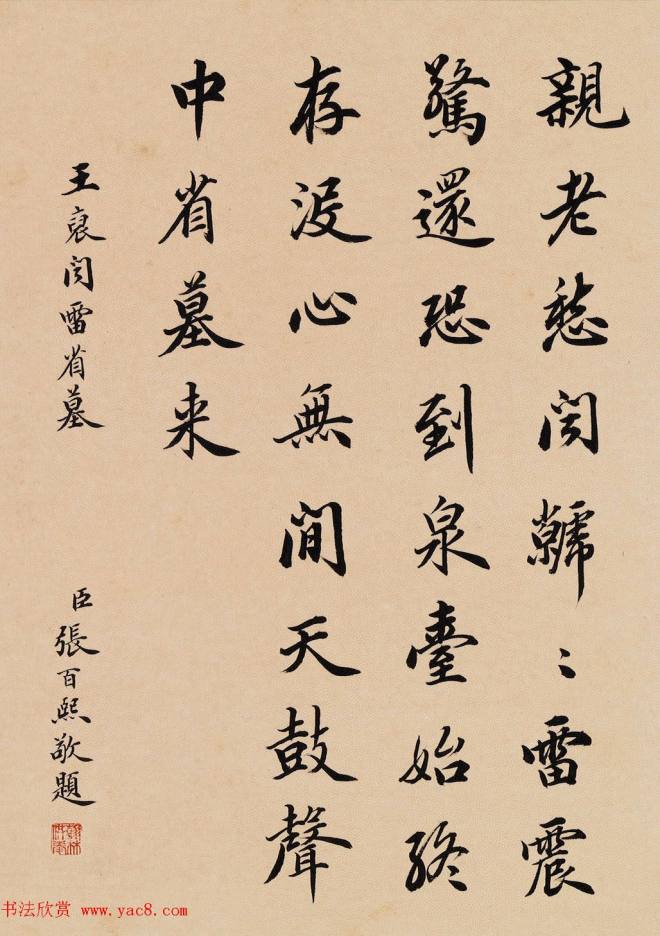 親老愁聞虩〻雷震
驚還恐到泉臺始終
存没心無間天鼓聲
中省墓来
王裒聞雷省墓
臣張百熙敬題
书法欣赏 www.yac8.com